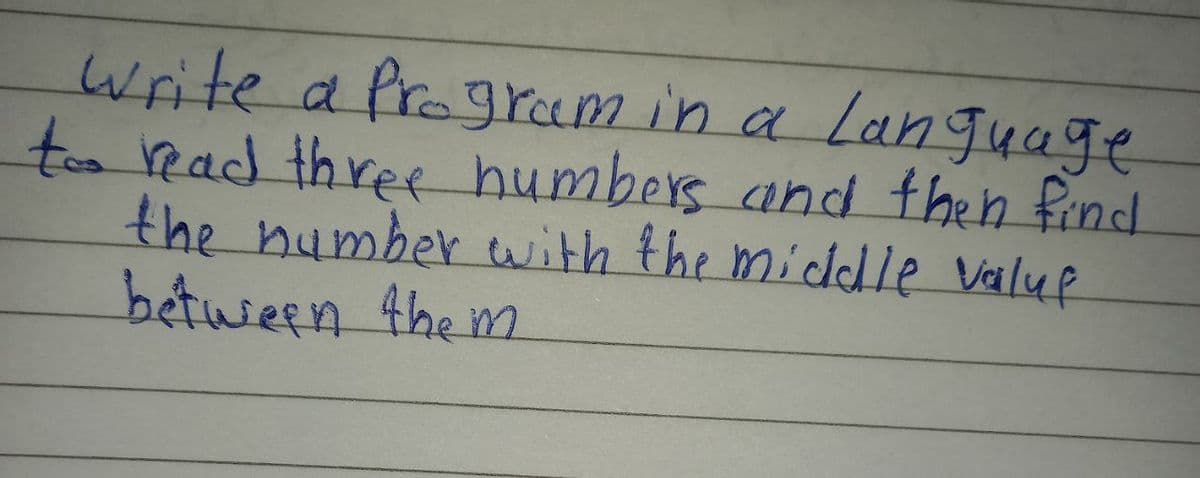 write a Program in a Language
to read three numbers and then find
the number with the middle value
between them